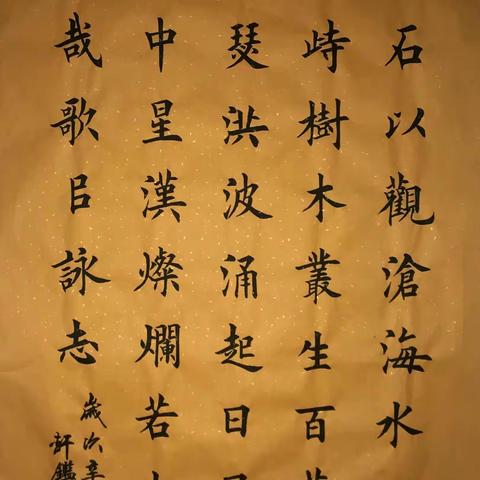 石以觀滄海水
峙樹木叢生百
瑟洪波涌起日
中星漢燦爛若
哉歌㠯詠志
歲次辛
軒鑑